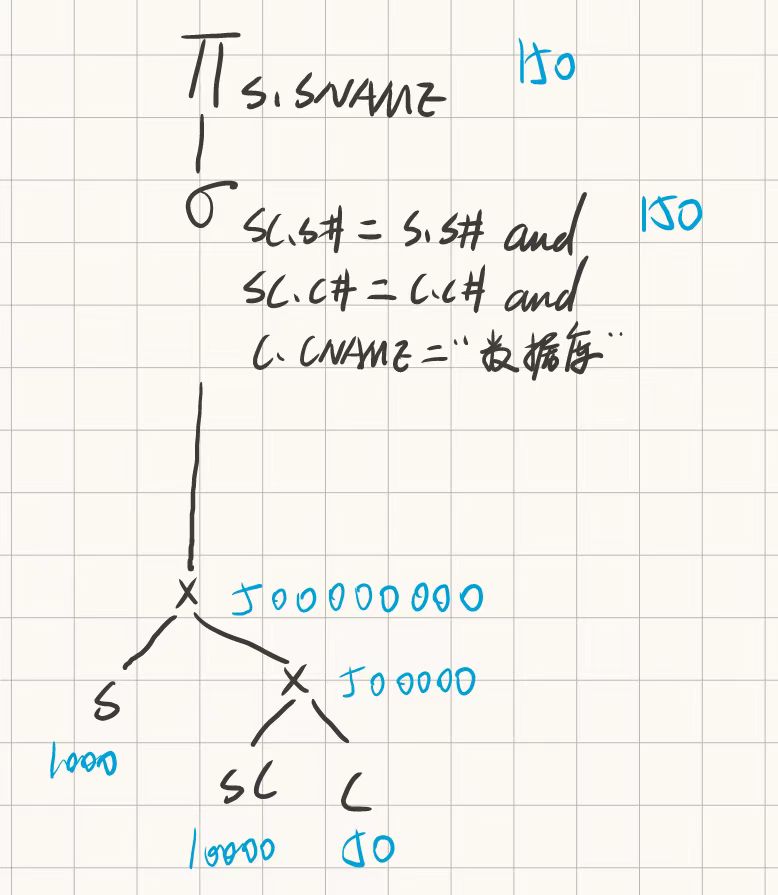 Π S.SNAME 150
σ SC.S# = S.S# and 150
SC.C# = C.C# and
C.CNAME = "数据库"
× 500000000
× 500000
S
1000
SC C
10000 50